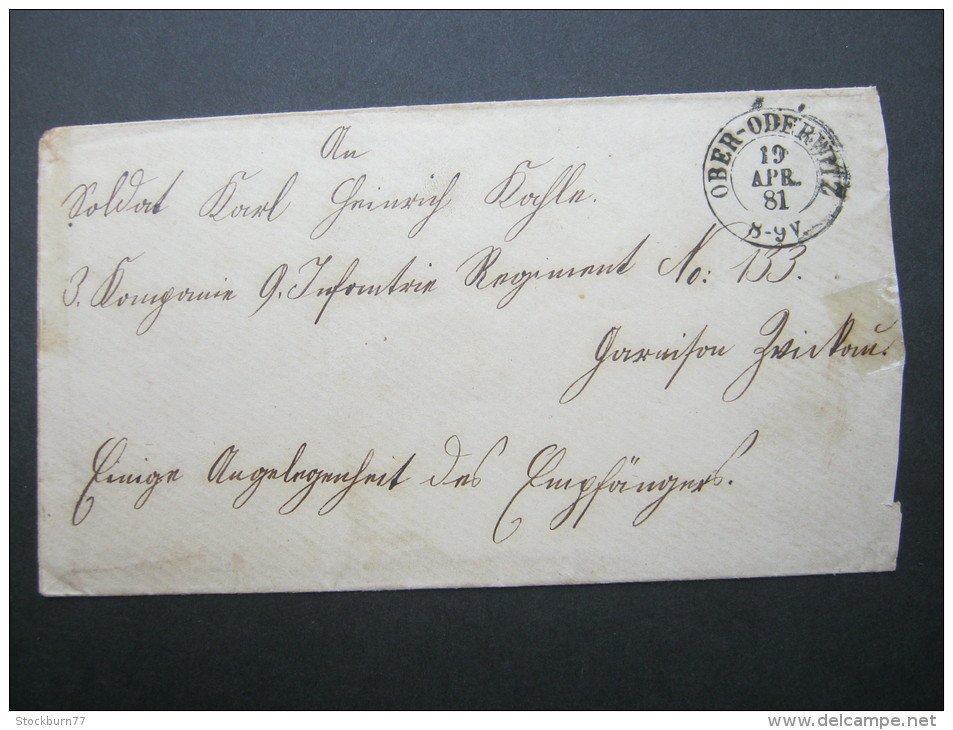 OBER-ODERWITZ
19
APR.
81
8-9V.
An
Soldat Karl Heinrich Kahle.
3. Kompanie 9. Infamtrie Regiment No: 133.
Garnison Zwickau.
Einige Angelegenheit des Empfängers.
Stockburn77
delcampe.net